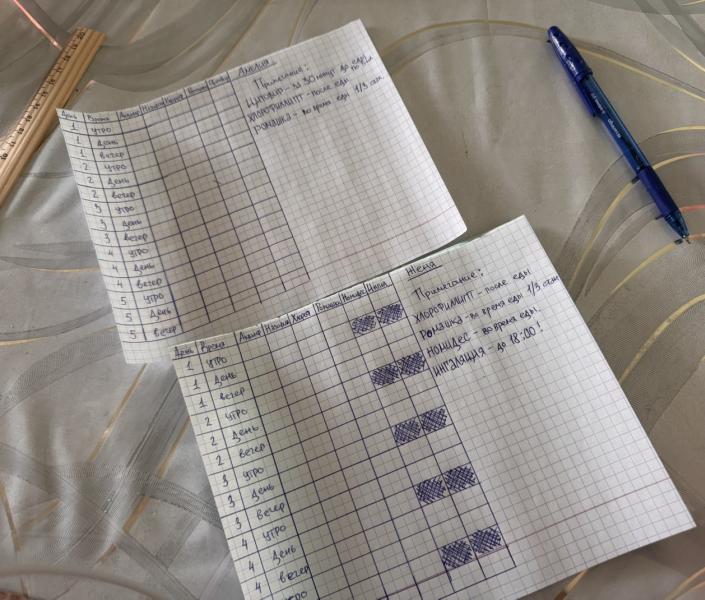 Амелия
День Время
1 утро
1 день
1 вечер
2 утро
2 день
2 вечер
3 утро
3 день
3 вечер
4 утро
4 день
4 вечер
5 утро
5 день
5 вечер
Примечание:
за 30 минут до еды
хлорофиллипт - после еды
ромашка - во время еды 1/3 стак.
Женя
День Время Ромашка
1 утро
1 день
1 вечер
2 утро
2 день
2 вечер
3 утро
3 день
3 вечер
4 утро
4 день
4 вечер
утро
Примечание:
хлорофиллипт - после еды
ромашка - во время еды 1/3 стак.
номидес - во время еды.
ингаляция - до 18:00!